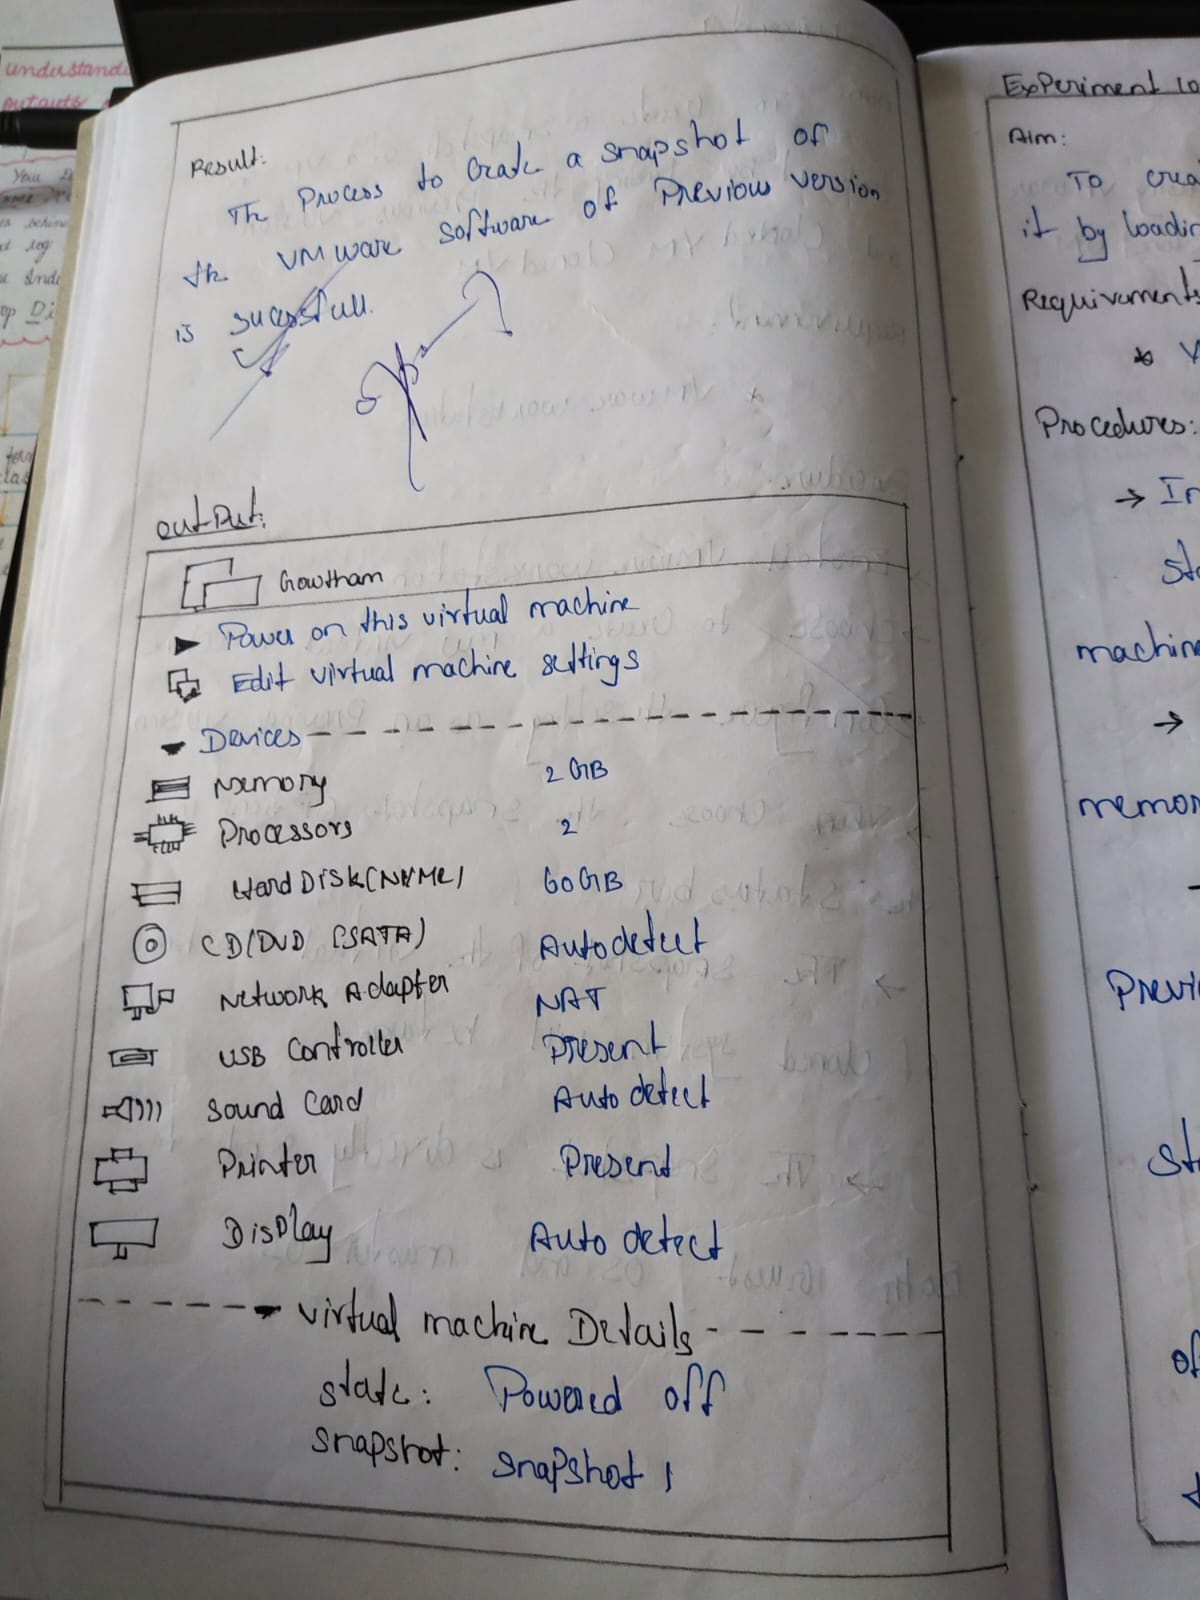 Result:
The Process to Create a snapshot of
the VMware software of Previous version
is sucessfull.
output:
Gowtham
Power on this virtual machine
Edit virtual machine settings
Devices
Memory 2 GB
Processors 2
Hard Disk (NVMe) 60 GB
CD/DVD (SATA) Auto detect
Network Adapter NAT
USB Controller Present
Sound Card Auto detect
Printer Present
Display Auto detect
Virtual machine Details
state: Powered off
snapshot: snapshot 1
Experiment 10
Aim:
To crea
it by loadin
Requirements
Procedures:
→ In
sta
machin
→
memor
Previ
sta
of
understand
outputs
You